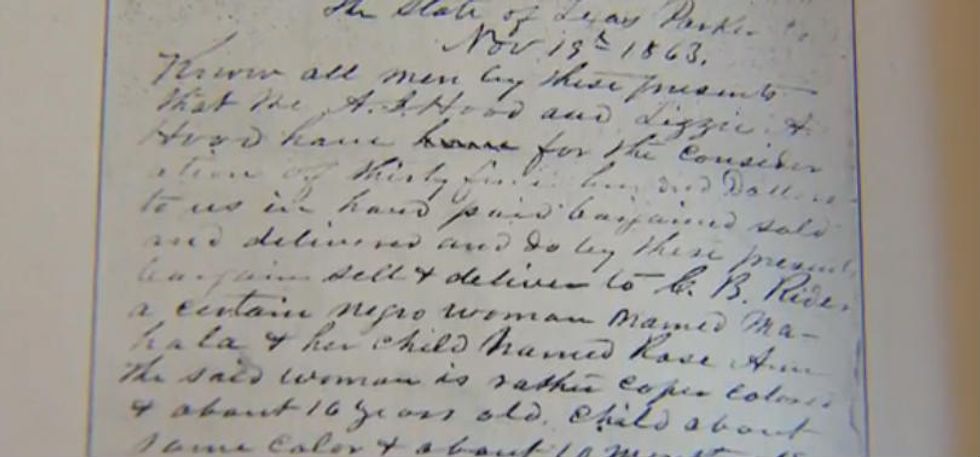 The State of Texas Parker Co
Nov. 19th 1863.
Know all men by these presents
that We A. S. Hood and Lizzie A
Hood have have for the consider
ation of thirty five hundred Dollars
to us in hand paid bargained sold
and delivered and do by these presents
bargain sell & deliver to C. B. Rider
a certain negro woman named Ma-
hala & her child named Rose Ann
The said woman is rather coper colored
& about 16 years old. Child about
same color & about 10 months